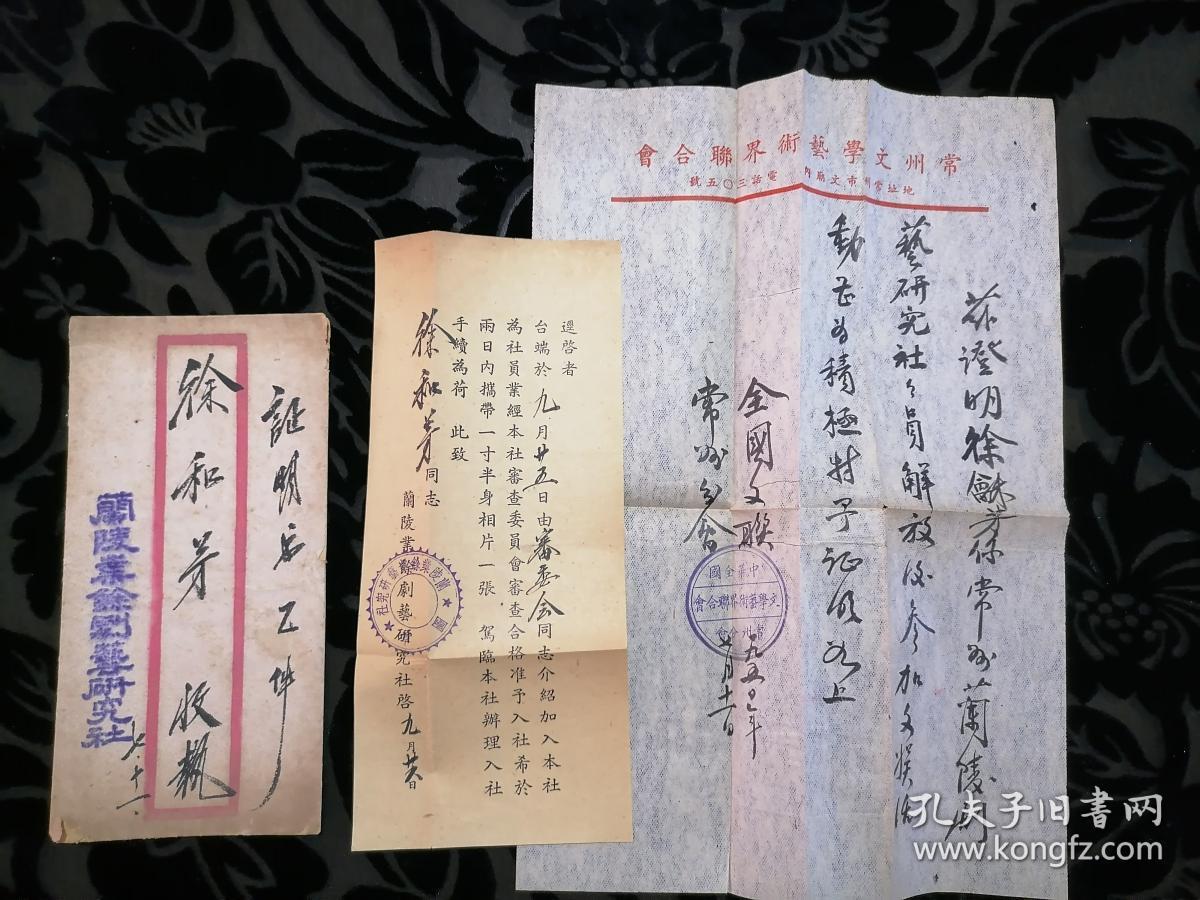 常州文學藝術界聯合會
地址常州市文廟內 電話三〇五號
茲證明徐龢芳係常州蘭陵劇
藝研究社々員解放後參加文娛活
動甚為積極特予证明為上
全國文联
常州分會
一九五〇年
七月十一日
中華全國
文學藝術界聯合會
常州分會
逕啓者
台端於九月廿五日由審委会同志介紹加入本社
為社員業經本社審查委員會審查合格准予入社希於
兩日內攜帶一寸半身相片一張 駕臨本社辦理入社
手續為荷 此致
徐和芳同志
蘭陵業餘劇藝研究社啓九月廿六日
証明書乙件
徐和芳 收執
蘭陵業餘劇藝研究社
七.十一.
孔夫子旧书网
www.kongfz.com